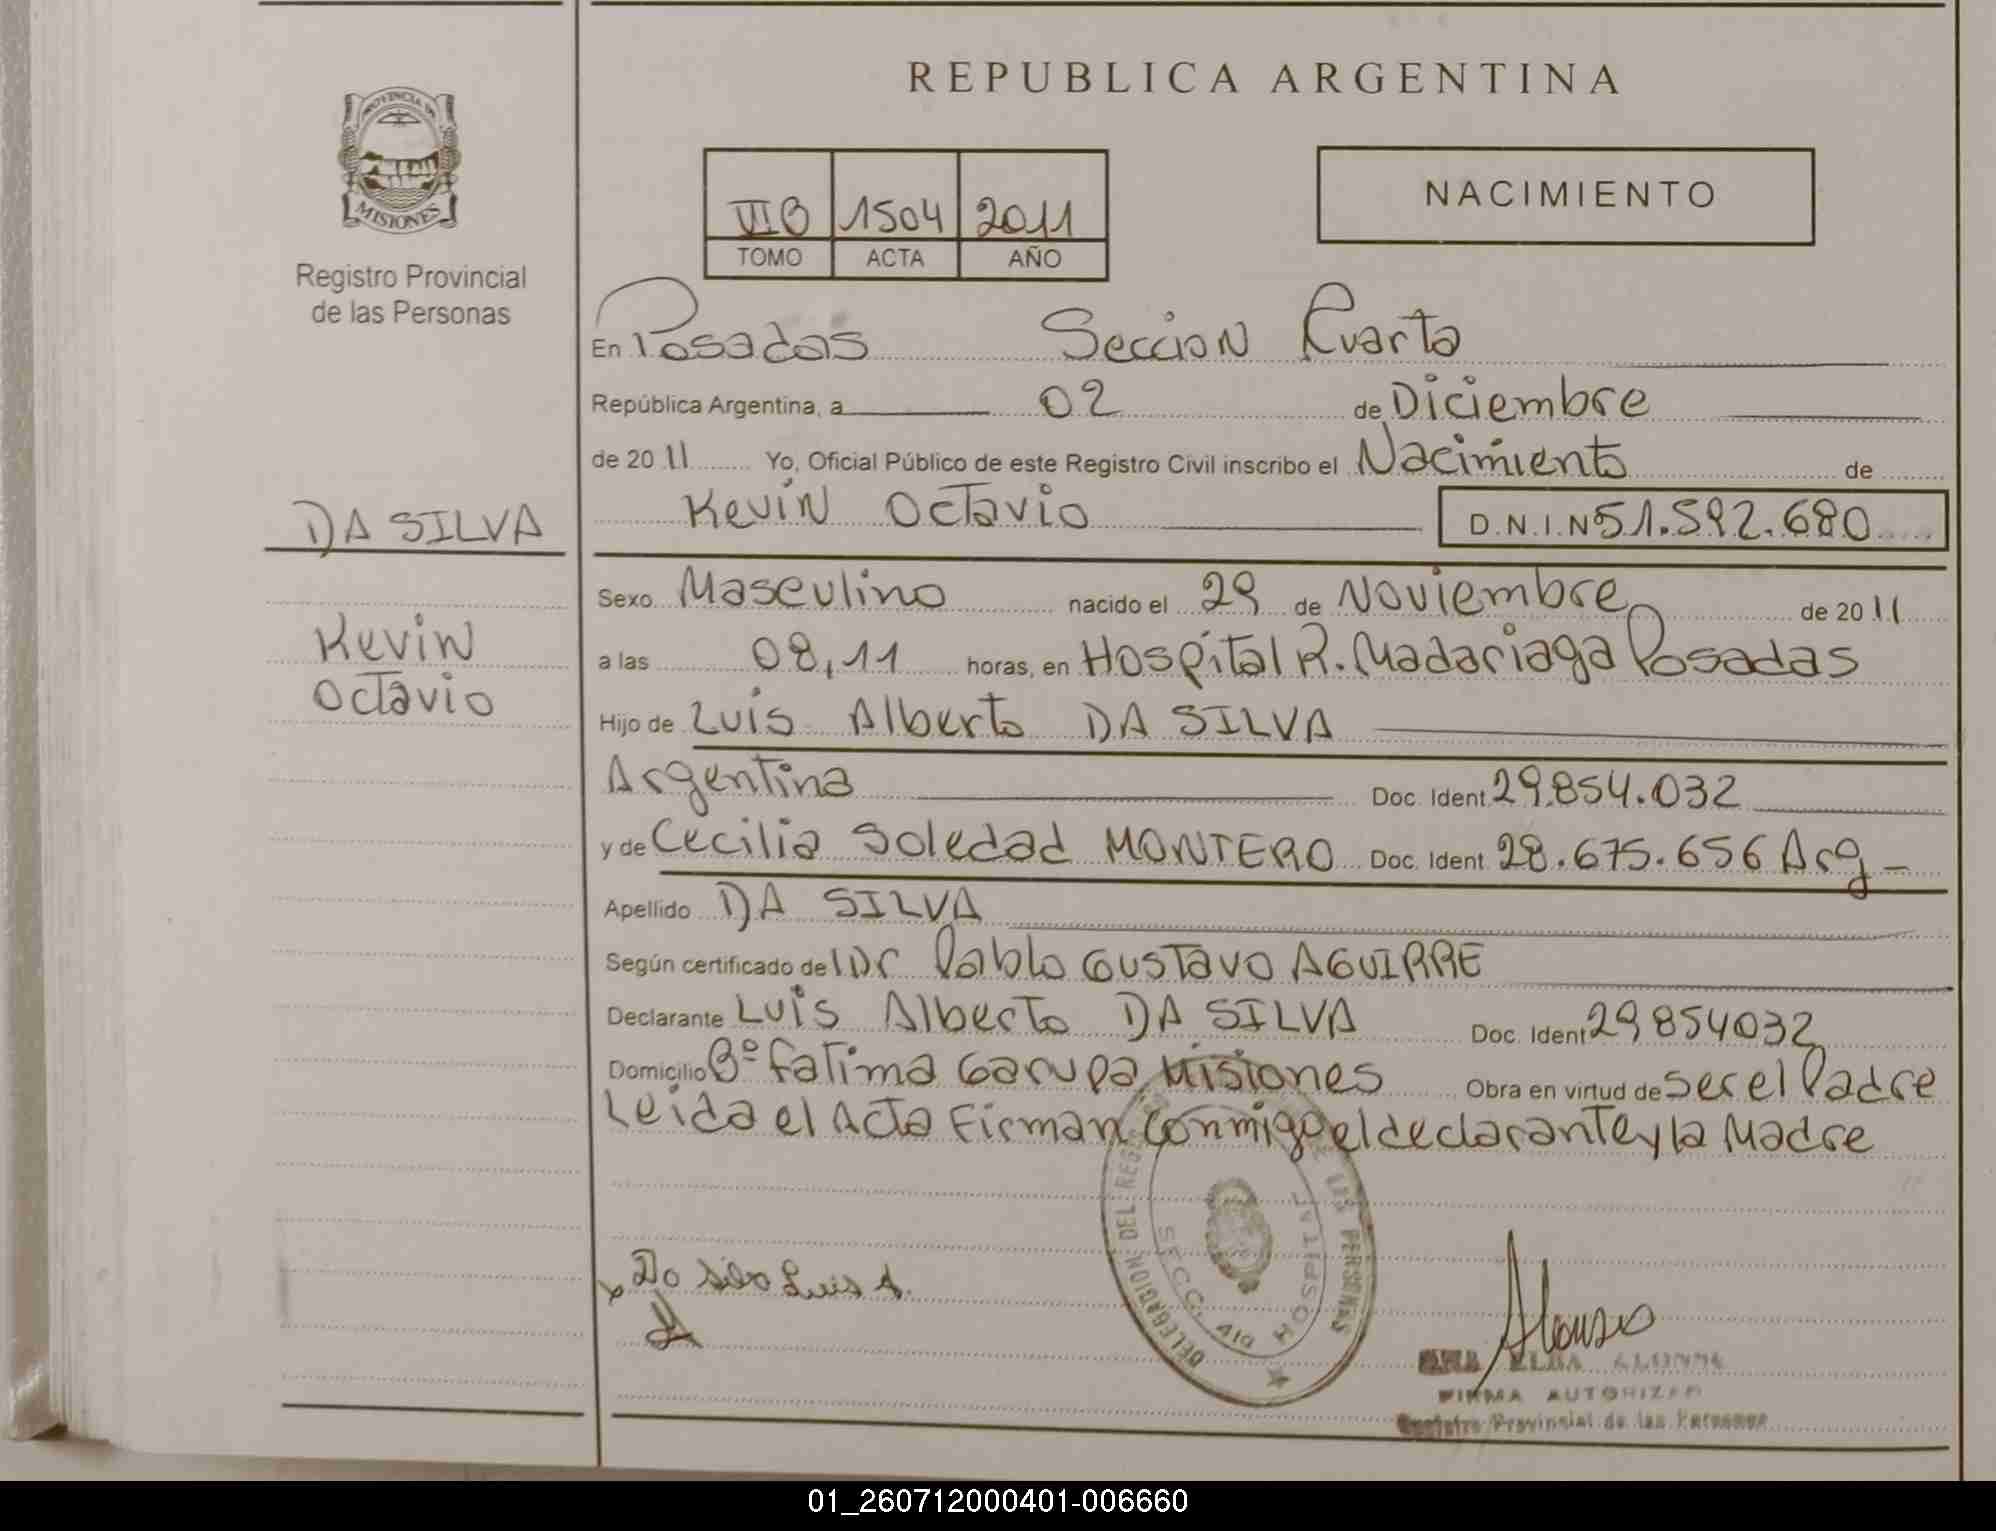 REPUBLICA ARGENTINA
PROVINCIA DE
MISIONES
Registro Provincial
de las Personas
VII B 1504 2011
TOMO ACTA AÑO
NACIMIENTO
En Posadas Seccion Cuarta
República Argentina, a 02 de Diciembre
de 2011 Yo, Oficial Público de este Registro Civil inscribo el Nacimiento de
Kevin Octavio D.N.I.N 51.592.680
DA SILVA
Kevin
Octavio
Sexo Masculino nacido el 29 de Noviembre de 2011
a las 08,11 horas, en Hospital R. Madariaga Posadas
Hijo de Luis Alberto DA SILVA
Argentina Doc. Ident 29.854.032
y de Cecilia Soledad MONTERO Doc. Ident. 28.675.656 Arg -
Apellido DA SILVA
Según certificado del Dr Pablo Gustavo AGUIRRE
Declarante Luis Alberto DA SILVA Doc. Ident 29854032
Domicilio Bº Fatima Garupa Misiones Obra en virtud de Ser el Padre
Leida el Acta Firman Conmigo el declarante y la Madre
DELEGACION DEL REG LAS PERSONAS
SECC. 4ta HOSPITAL
Da Silva Luis A.
Alonso
ELBA ALONSO
FIRMA AUTORIZAD
Registro Provincial de las Personas
01_260712000401-006660